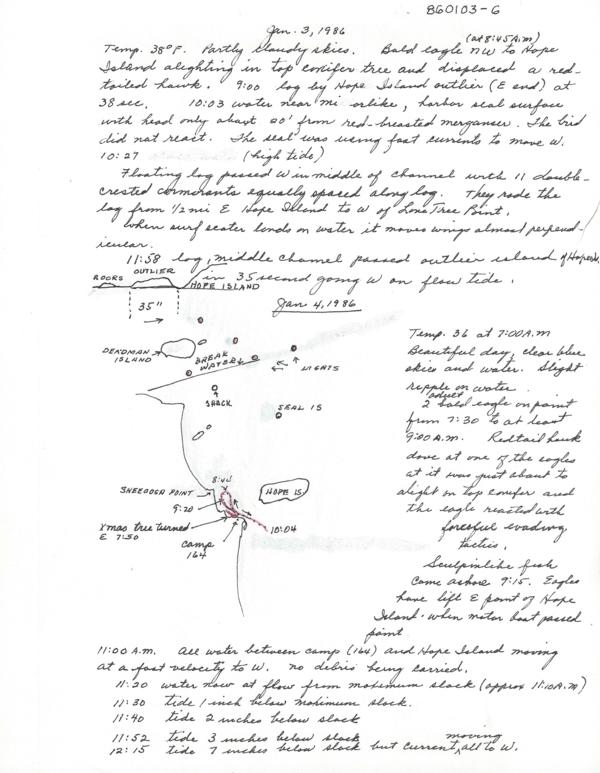 860103-6
Jan. 3, 1986
(at 8:45 A.M)
Temp. 38°F. Partly cloudy skies. Bald eagle NW to Hope
Island alighting in top conifer tree and displaced a red-
tailed hawk. 9:00 log by Hope Island outlier (E end) at
38 sec. 10:03 water near mirrorlike, harbor seal surface
with head only about 20' from red-breasted merganser. The bird
did not react. The seal was using fast currents to move W.
10:27 (high tide)
Floating log passed W in middle of channel with 11 double-
crested cormorants equally spaced along log. They rode the
log from 1/2 mi E Hope Island to W of Lone Tree Point.
When surf scoter lands on water it moves wings almost perpend-
icular.
11:58 log, middle channel passed outlier island of Hope Is,
in 35 second going W on flow tide.
OUTLIER
HOPE ISLAND
35"
Jan 4, 1986
DEADMAN
ISLAND
BREAK
WATER
LIGHTS
SHACK
SEAL IS
SNEEOOSH POINT
8:40
9:20
HOPE IS
10:04
Xmas tree turned
E 7:50
CAMP
164
Temp. 36 at 7:00 A.M
Beautiful day, clear blue
skies and water. Slight
ripple on water.
2 adult bald eagle on point
from 7:30 to at least
9:00 A.M. Redtail hawk
dove at one of the eagles
at it was just about to
alight on top conifer and
the eagle reacted with
forceful evading
tactics.
Sculpinlike fish
came ashore 9:15. Eagles
have left E point of Hope
Island when motor boat passed
point
11:00 A.M. All water between camp (164) and Hope Island moving
at a fast velocity to W. no debris being carried.
11:20 water now at flow from maximum slack (approx 11:10 A.M)
11:30 tide 1 inch below maximum slack.
11:40 tide 2 inches below slack
11:52 tide 3 inches below slack
12:15 tide 7 inches below slack but current moving all to W.